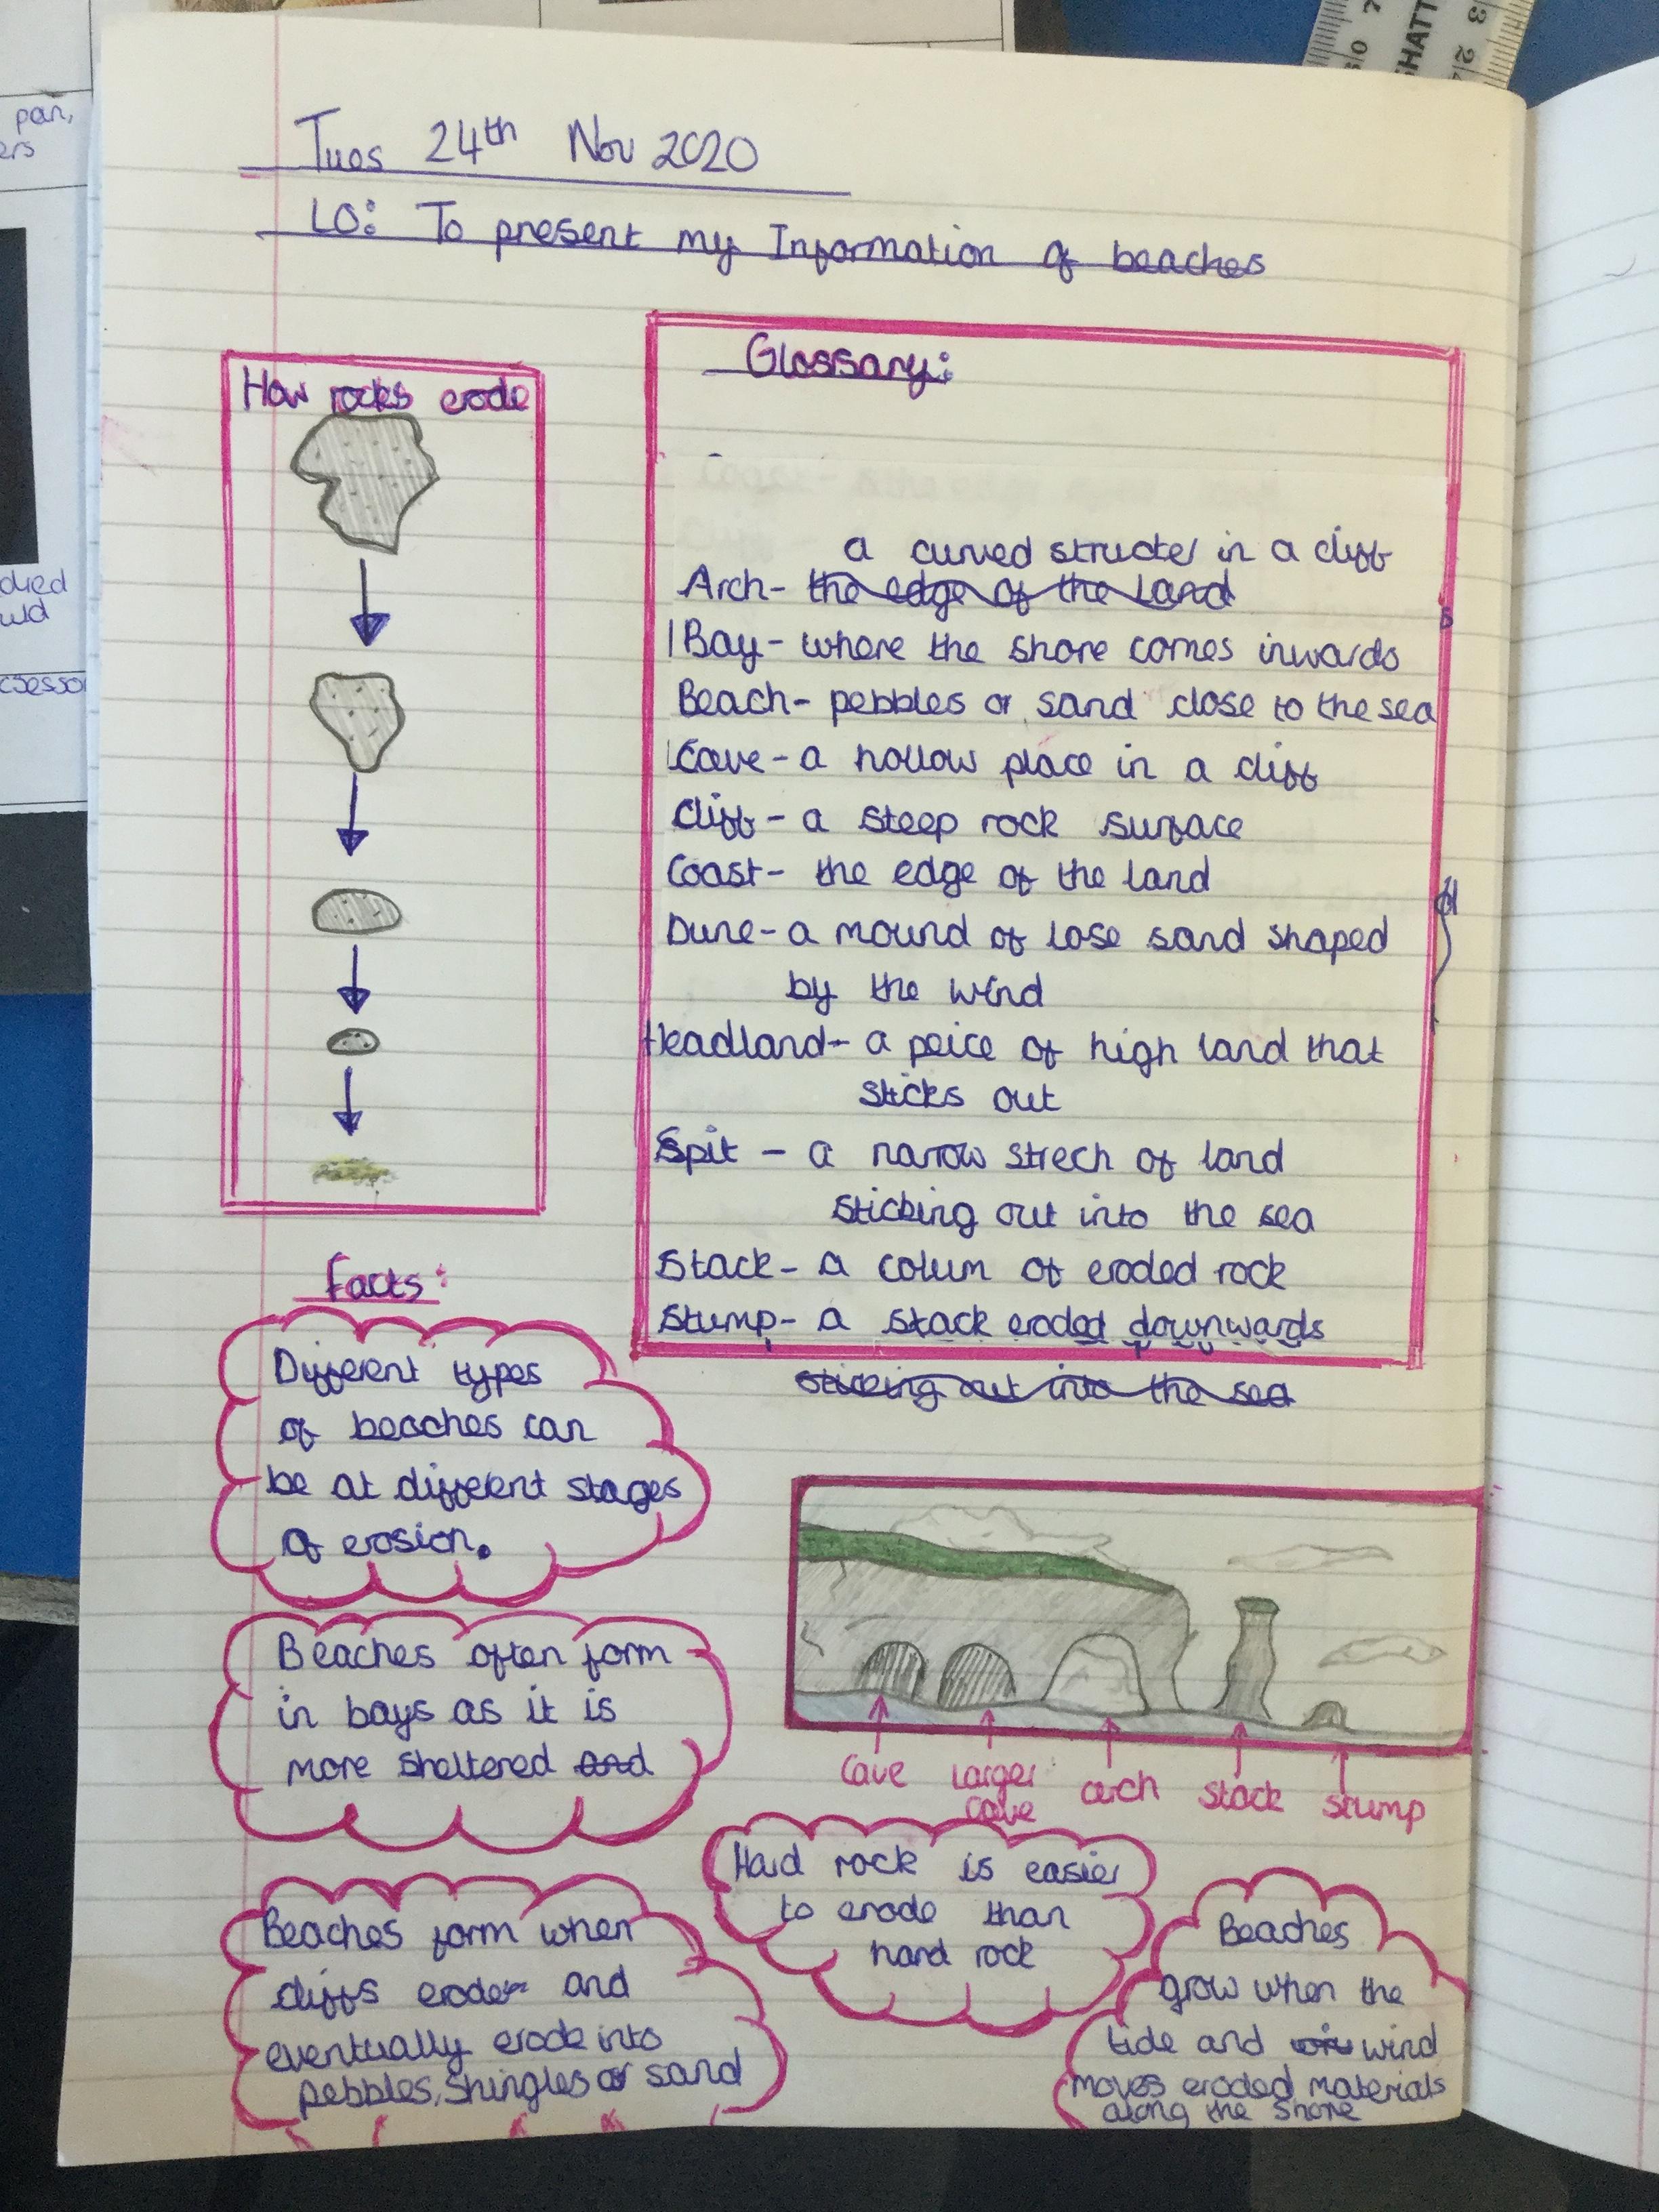 Tues 24th Nov 2020
LO: To present my Information of beaches
How rocks erode
Glossary:
a curved structer in a cliff
Arch- the edge of the Land
Bay- where the shore comes inwards
Beach- pebbles or sand close to the sea
Cave- a hollow place in a cliff
Cliff- a steep rock surface
Coast- the edge of the land
Dune- a mound of lose sand shaped
by the wind
Headland- a peice of high land that
sticks out
Spit - a narrow strech of land
sticking out into the sea
Stack- a colum of eroded rock
Stump- a stack eroded downwards
sticking out into the sea
Facts:
Different types
of beaches can
be at different stages
of erosion.
Beaches often form
in bays as it is
more sheltered and
Beaches form when
cliffs erode and
eventually erode into
pebbles, shingles or sand
Cave
Larger
cave
arch
stack
stump
Hard rock is easier
to erode than
hard rock
Beaches
grow when the
tide and wind
moves eroded materials
along the shore
pan,
ers
died
uld
SHATT